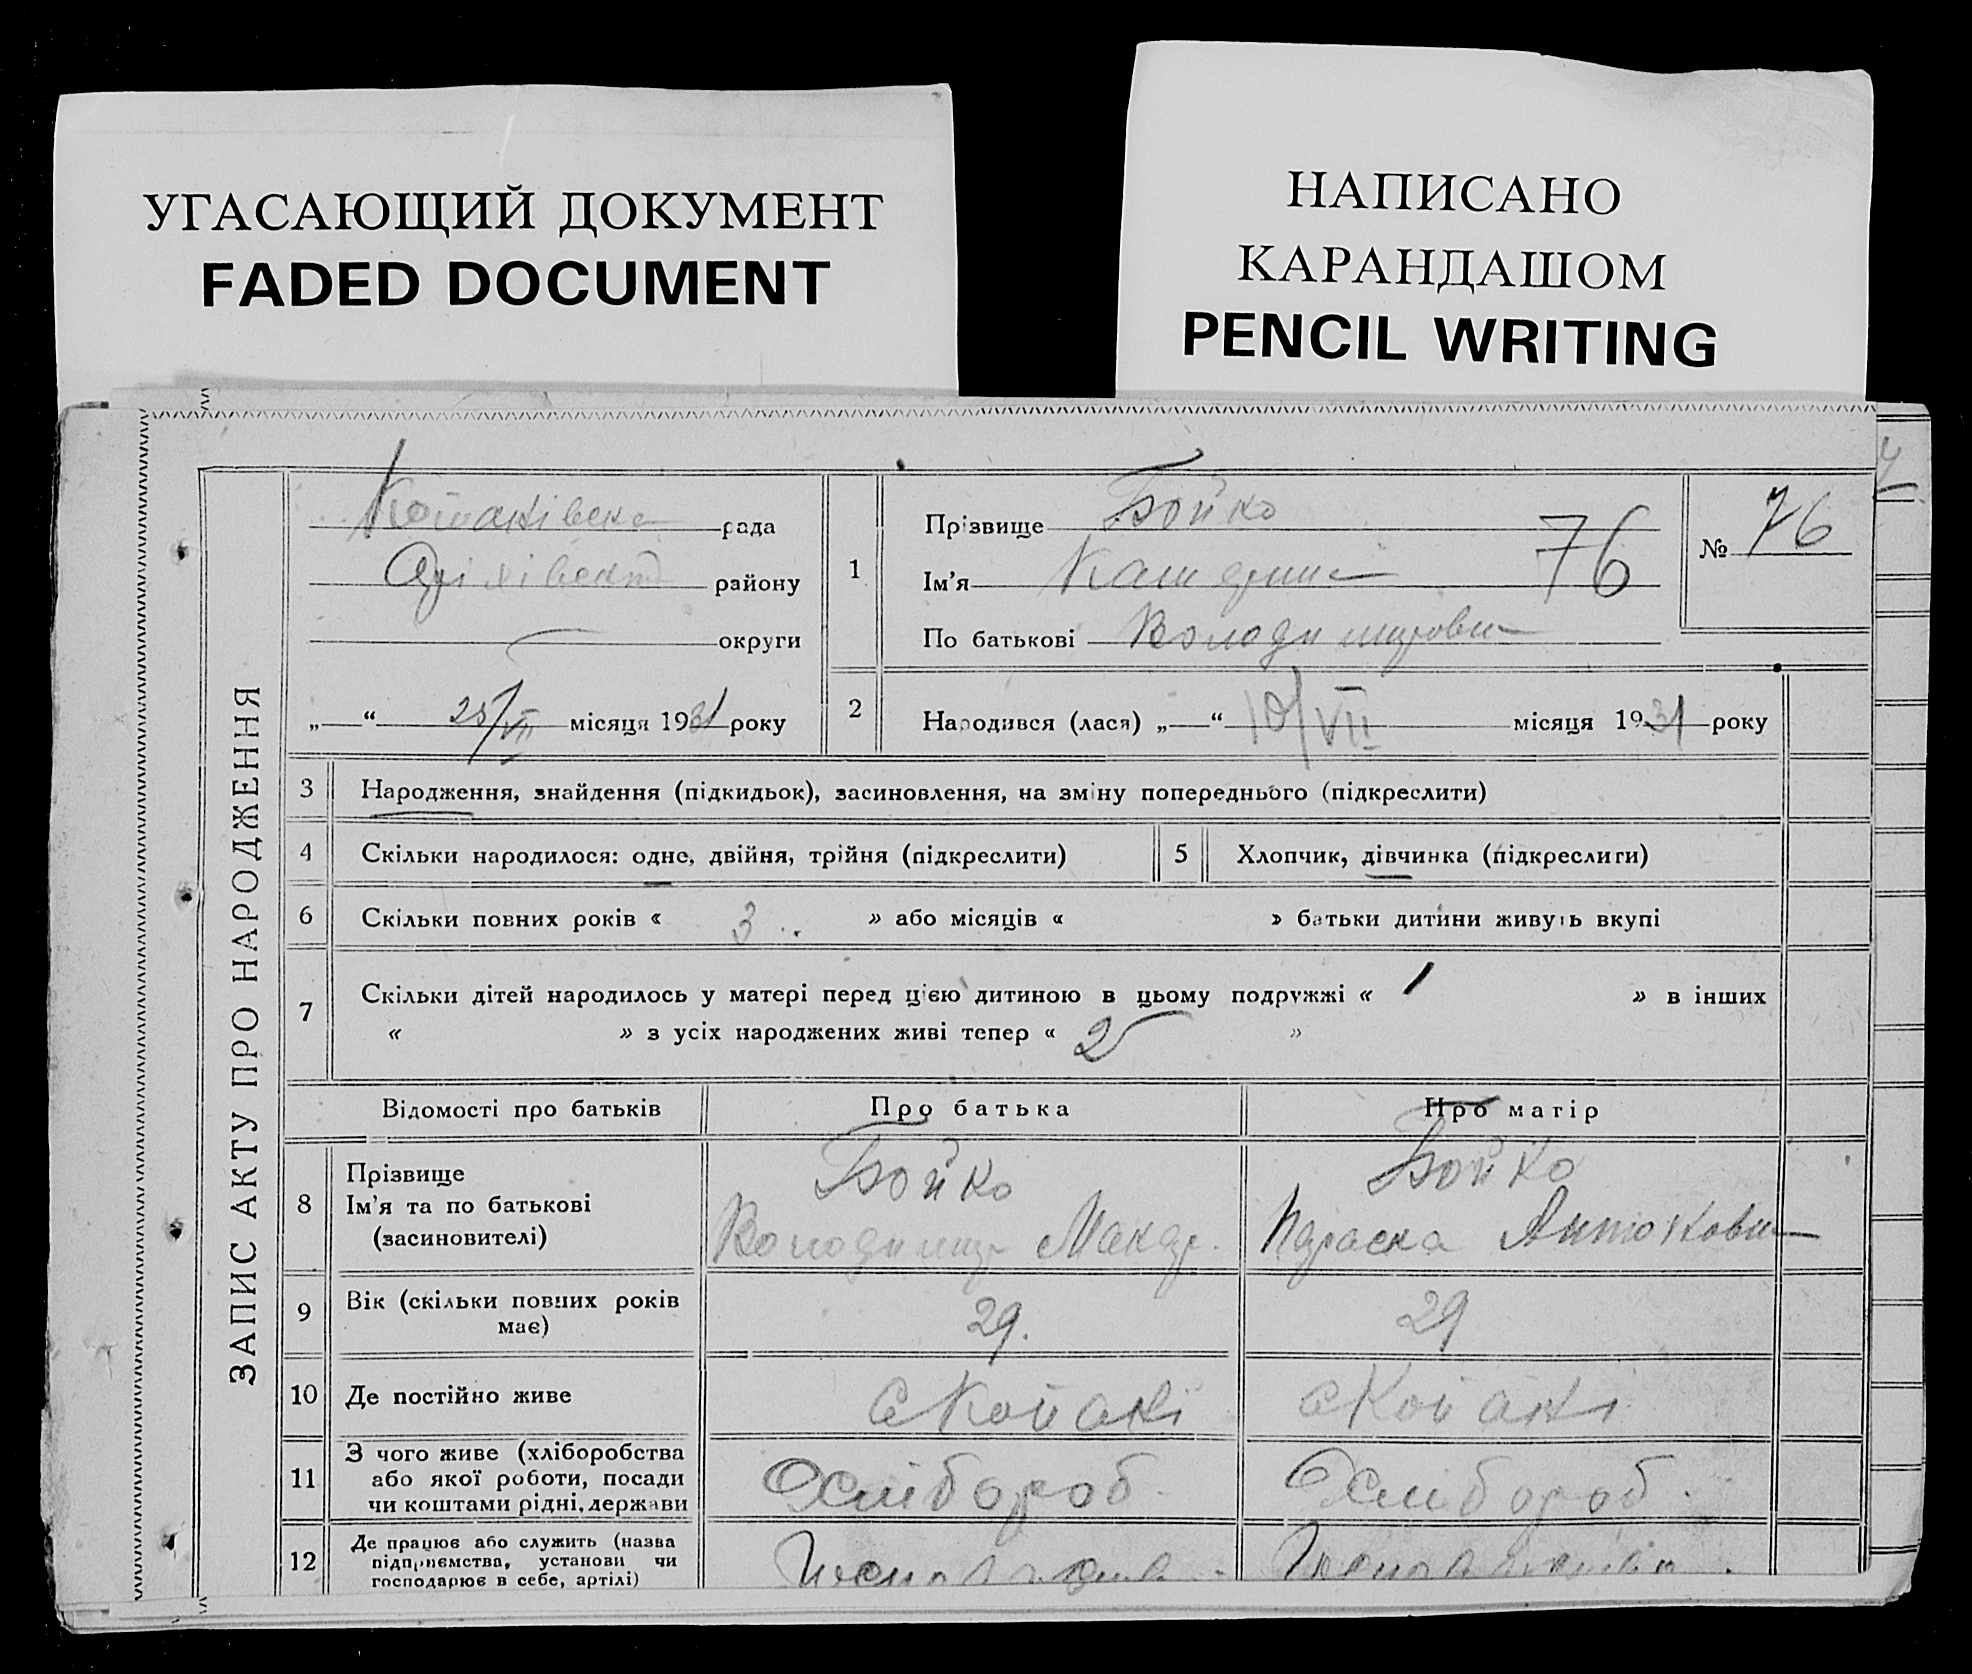 УГАСАЮЩИЙ ДОКУМЕНТ
FADED DOCUMENT
НАПИСАНО
КАРАНДАШОМ
PENCIL WRITING
ЗАПИС АКТУ ПРО НАРОДЖЕННЯ
рада
району
округи
„—“ 25/VII місяця 1931 року
1
Прізвище Бойко
Ім’я Катерина 76
По батькові Володимировна
№ 76
2 Народився (лася) „—“ 10/VII місяця 1931 року
3 Народження, знайдення (підкидьок), засиновлення, на зміну попереднього (підкреслити)
4 Скільки народилося: одне, двійня, трійня (підкреслити) 5 Хлопчик, дівчинка (підкреслити)
6 Скільки повних років « 3 » або місяців « » батьки дитини живуть вкупі
7 Скільки дітей народилось у матері перед цією дитиною в цьому подружжі « 1 » в інших
« » з усіх народжених живі тепер « 2 »
Відомості про батьків Про батька Про матір
8 Прізвище
Ім’я та по батькові
(засиновителі)
Бойко
Володимир Макар.
Бойко
Параска Антоновна
9 Вік (скільки повних років
має)
29. 29
10 Де постійно живе с Копані с Копані
11 З чого живе (хліборобства
або якої роботи, посади
чи коштами рідні, держави
Хлібороб. Хлібороб.
12 Де працює або служить (назва
підприємства, установи чи
господарює в себе, артілі)